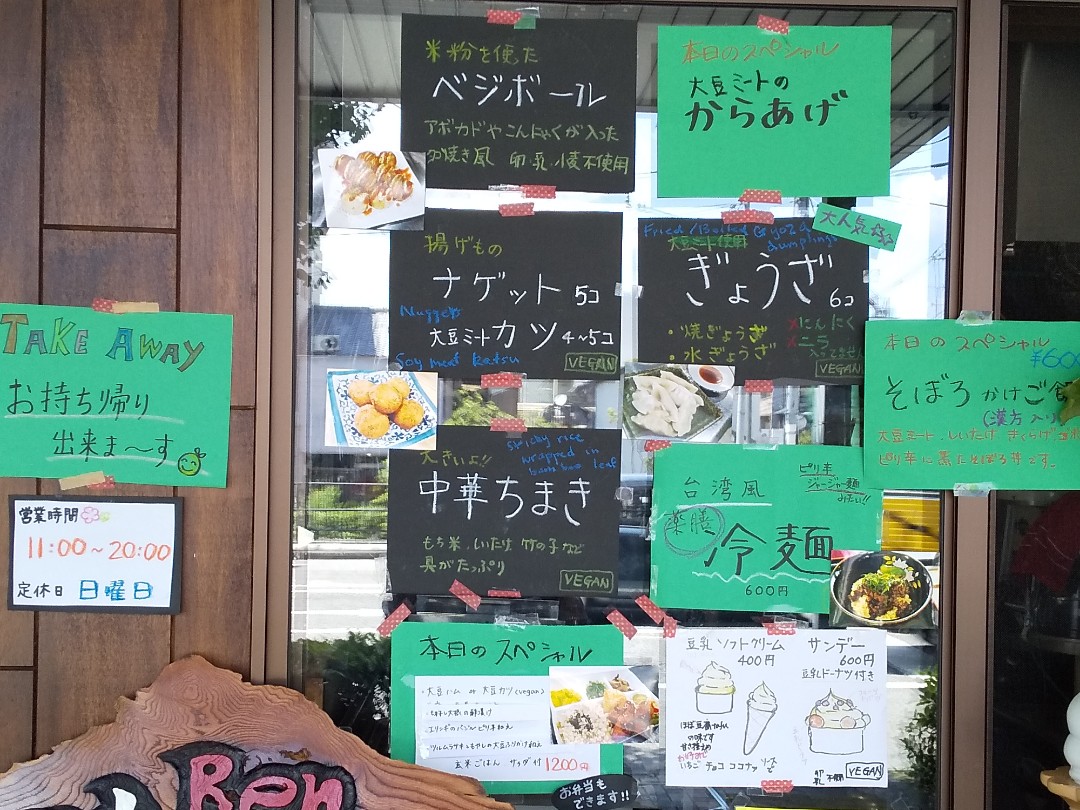 米粉を使た
ベジボール
アボカドやこんにゃくが入った
卵.乳.小麦不使用
本日のスペシャル
大豆ミートの
からあげ
大人気
揚げもの
ナゲット 5コ
Nuggets
大豆ミートカツ 4~5コ
Soy meat katsu
VEGAN
Fried/Boiled Gyoza
dumplings
大豆ミート使用
ぎょうざ 6コ
・焼ぎょうざ
・水ぎょうざ
×にんにく
×ニラ
入ってません
VEGAN
TAKE AWAY
お持ち帰り
出来ま~す
本日のスペシャル
¥600
そぼろかけご
(漢方入り)
大豆ミート、しいたけ、きくらげ
ピリ辛に煮たそぼろ丼です。
営業時間
11:00~20:00
定休日 日曜日
大きいよ!!
Sticky rice
wrapped in
bamboo leaf
中華ちまき
もち米、しいたけ、竹の子など
具がたっぷり
VEGAN
ピリ辛
ジャージャー麺
みたい!!
台湾風
薬膳
冷麺
600円
本日のスペシャル
・大豆ハム or 大豆カツ(vegan)
玄米ごはん サラダ付 1200円
お弁当も
できます!!
豆乳ソフトクリーム
400円
サンデー
600円
豆乳ドーナツ付き
の味です
甘さ控えめ
いちご チョコ ココナッツ
VEGAN
Ren